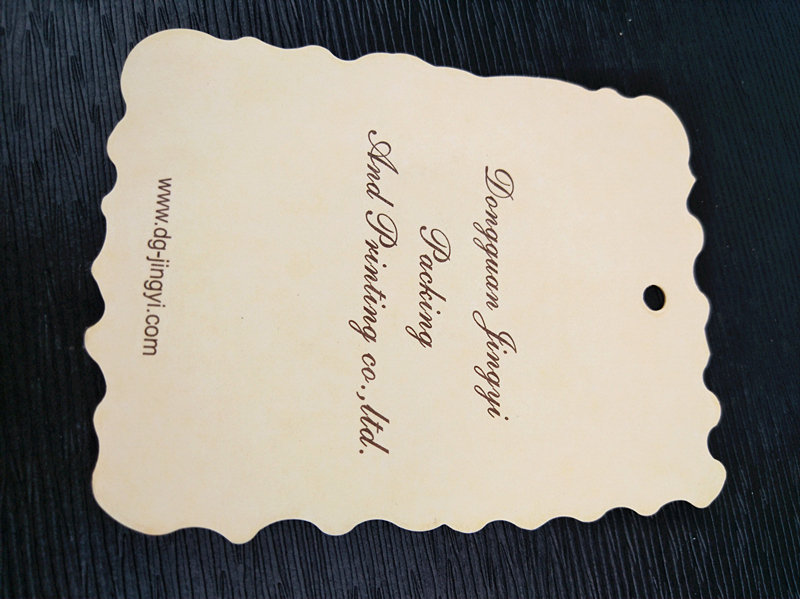 Dongguan Jingyi
Packing
And Printing co.,ltd.
www.dg-jingyi.com